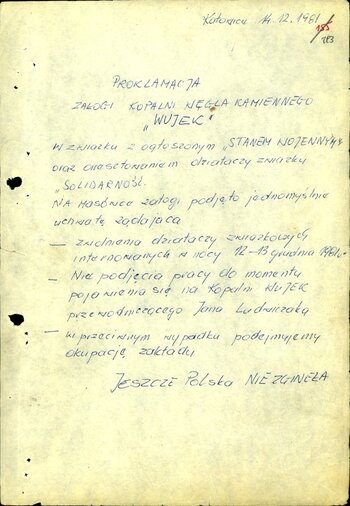 Katowice 14.12.1981
153
283
PROKLAMACJA
ZAŁOGI KOPALNI WĘGLA KAMIENNEGO
„WUJEK”
W związku z ogłoszonym „STANEM WOJENNYM”
oraz aresztowaniem działaczy związku
„SOLIDARNOŚĆ.
NA Masówce załogi podjęto jednomyślnie
uchwałę żądającą
— zwolnienia działaczy związkowych
internowanych w nocy 12-13 grudnia 1981r.
— Nie podjęcia pracy do momentu
pojawienia się na Kopalni WUJEK
przewodniczącego Jana Ludwiczaka
— w przeciwnym wypadku podejmujemy
okupację zakładu
JESZCZE POLSKA NIE ZGINĘŁA